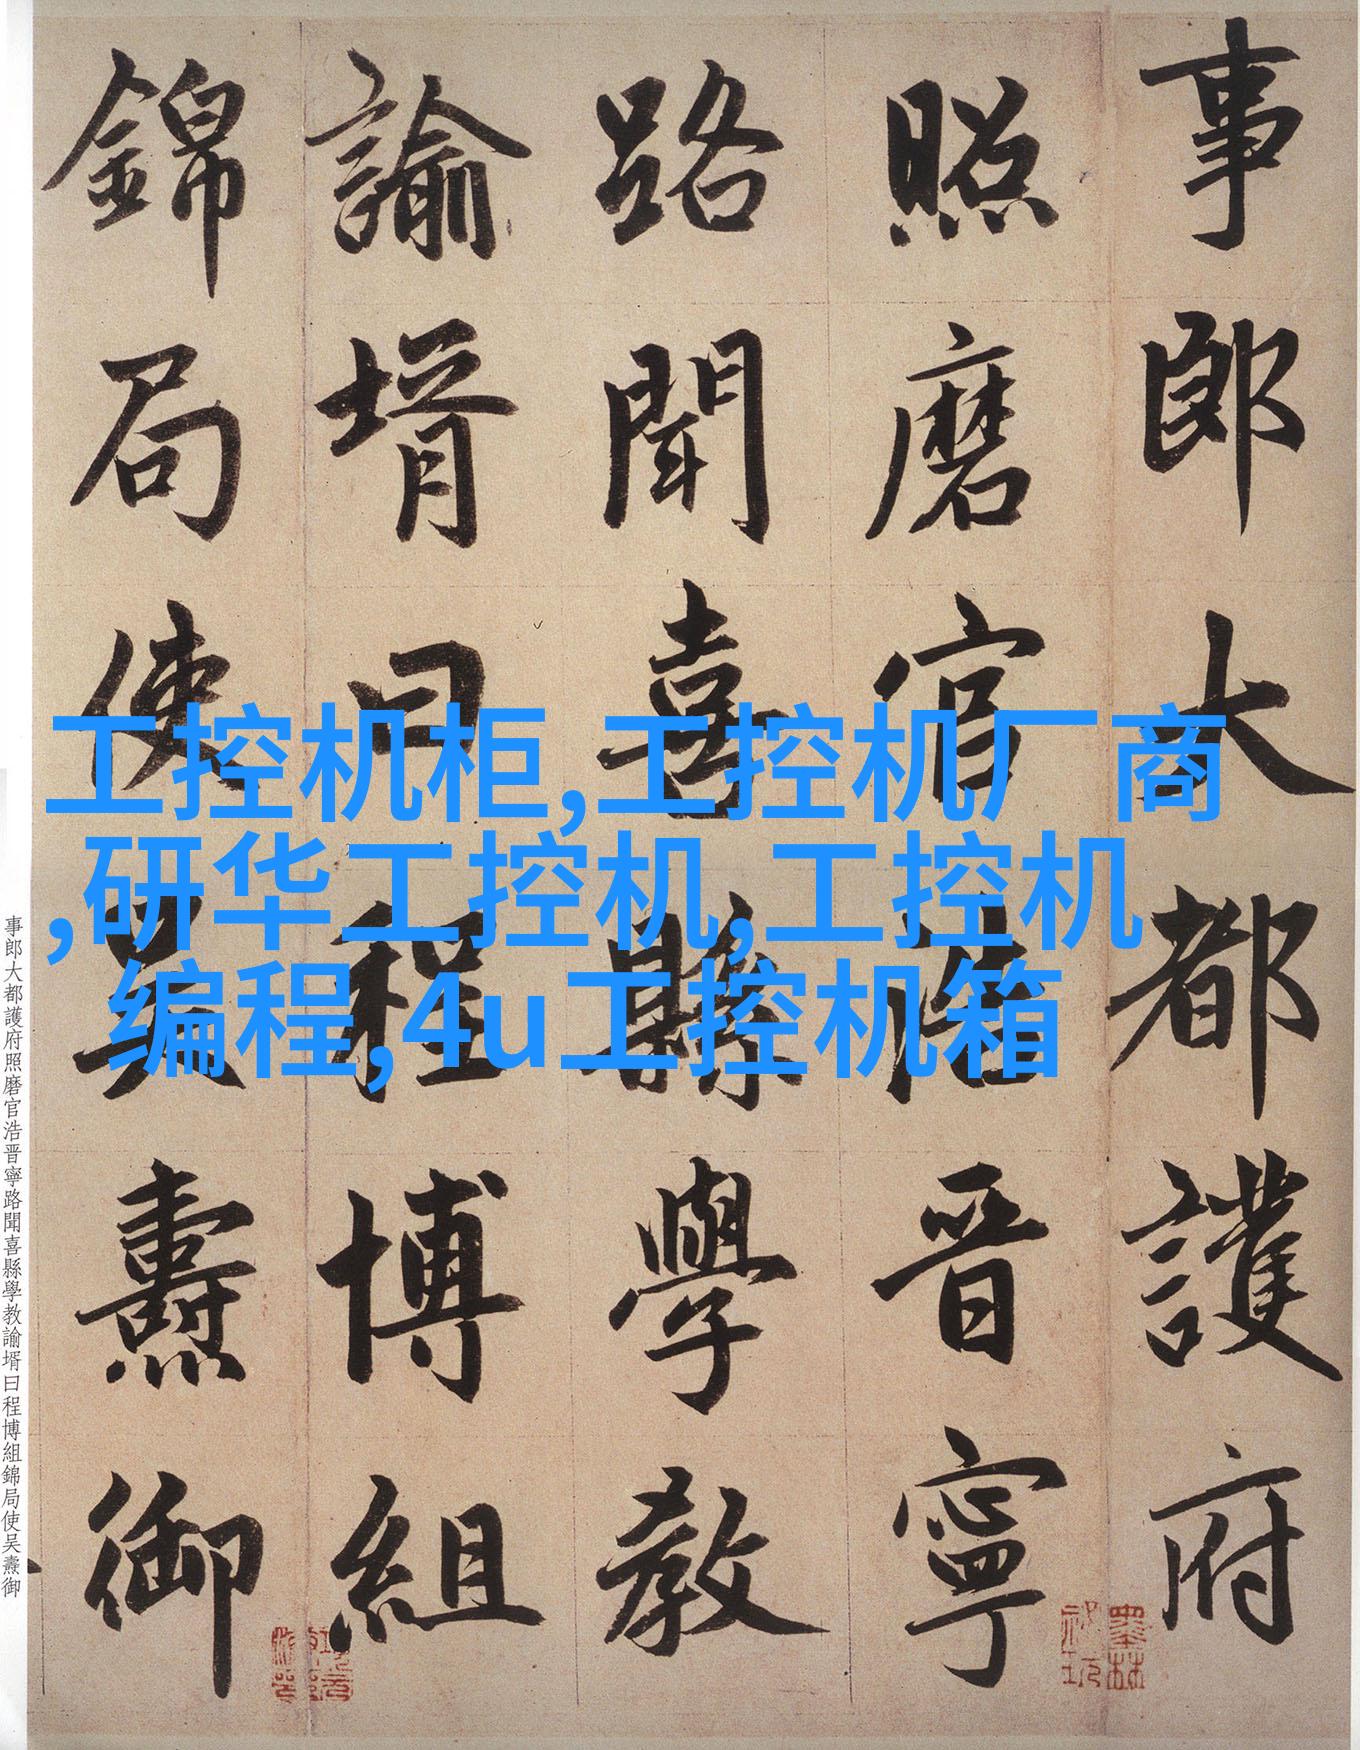 事郎大都護府
照磨官浩晋寧
路聞喜縣學教
諭壻曰程博組
錦局使吴燾御
工控机柜,工控机厂商
,研华工控机,工控机
编程,4u工控机箱
事郎大都護府照磨官浩晋寧路聞喜縣學教諭壻曰程博組錦局使吴燾御